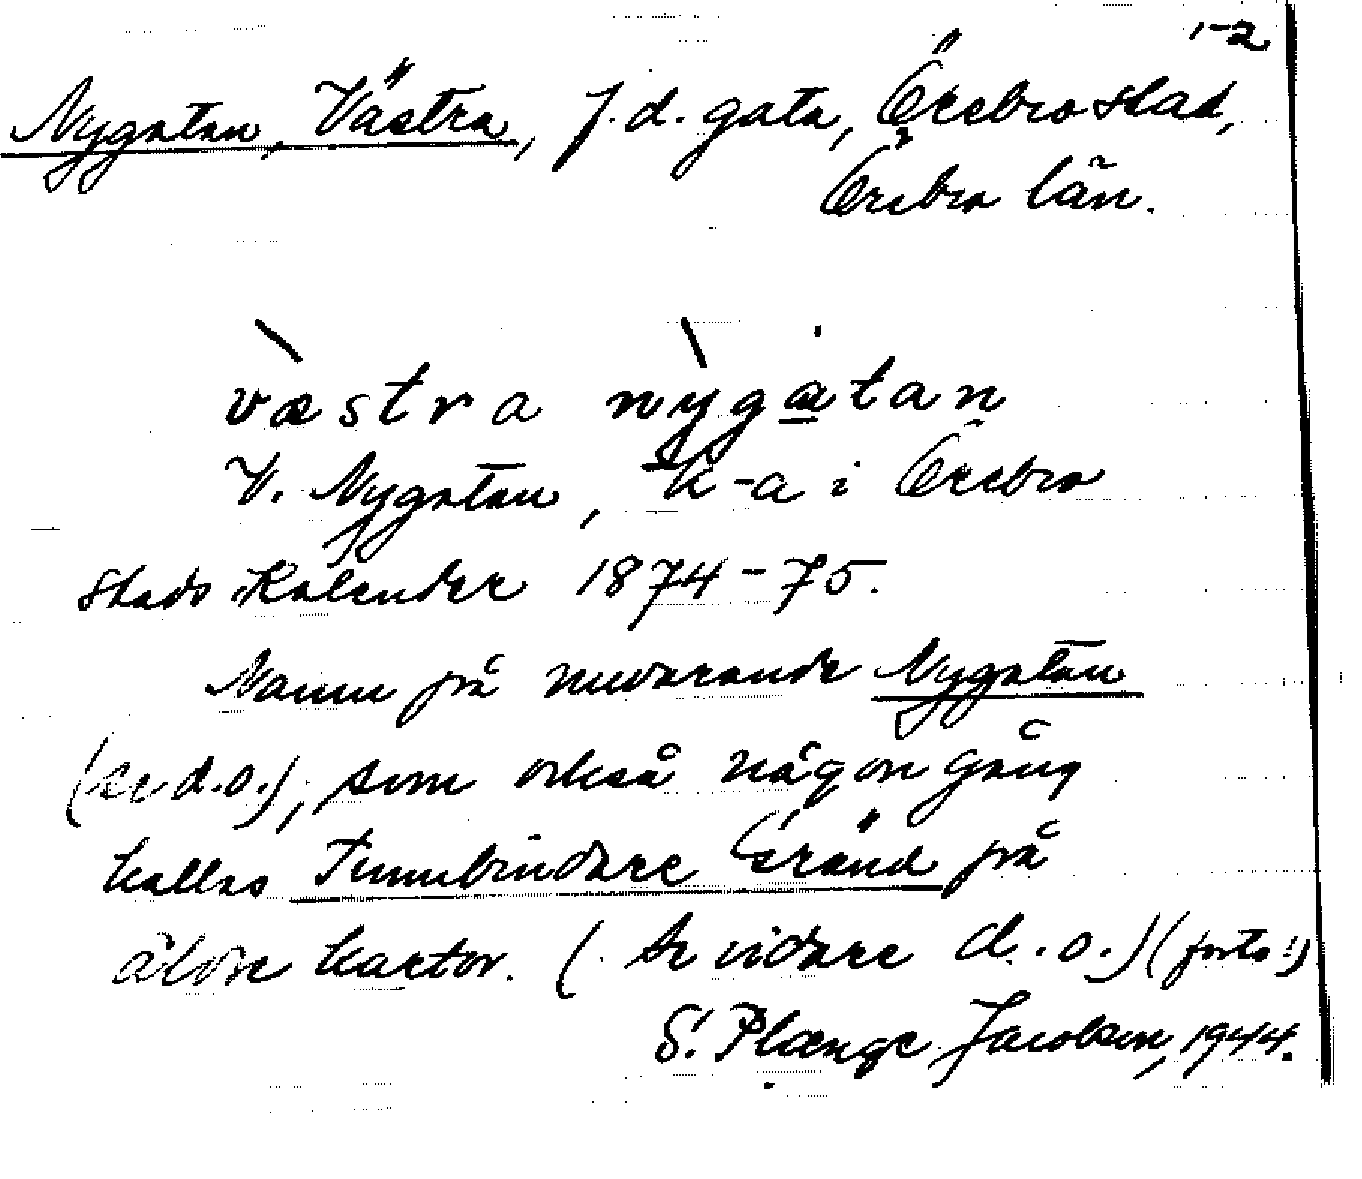 1-2
Nygatan, Västra, f.d. gata, Örebro stad,
Örebro län.
væ̀stra nỳga̲tan
V. Nygatan, k-a i Örebro
Stads Kalender 1874-75.
Namn på nuvarande Nygatan
(se d.o.), som också någon gång
kallas Tunnbindare Gränd på
äldre kartor. (Se vidare d.o.) (forts!)
S. Plænge Jacobson, 1944.